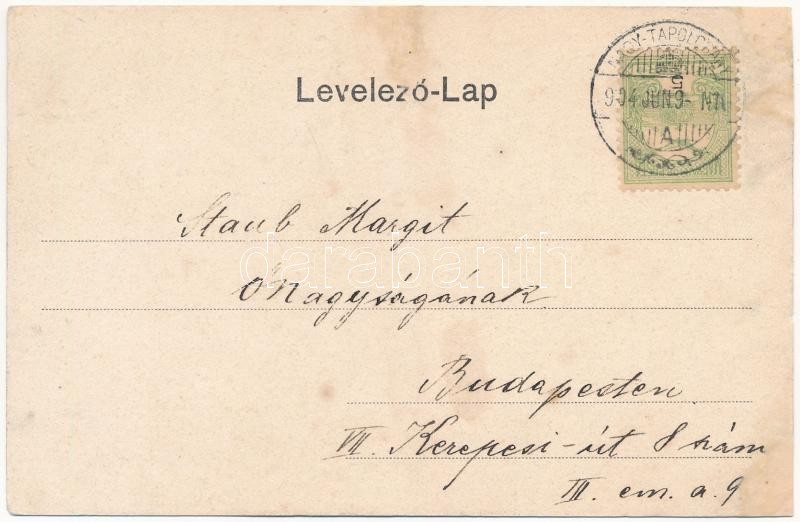 NAGY-TAPOLCSÁNY
904 JUN 9- N7
A
5
Levelező-Lap
Staub Margit
Őnagyságának
Budapesten
VII. Kerepesi-út 8 szám
III. em. a. 9
darabanth